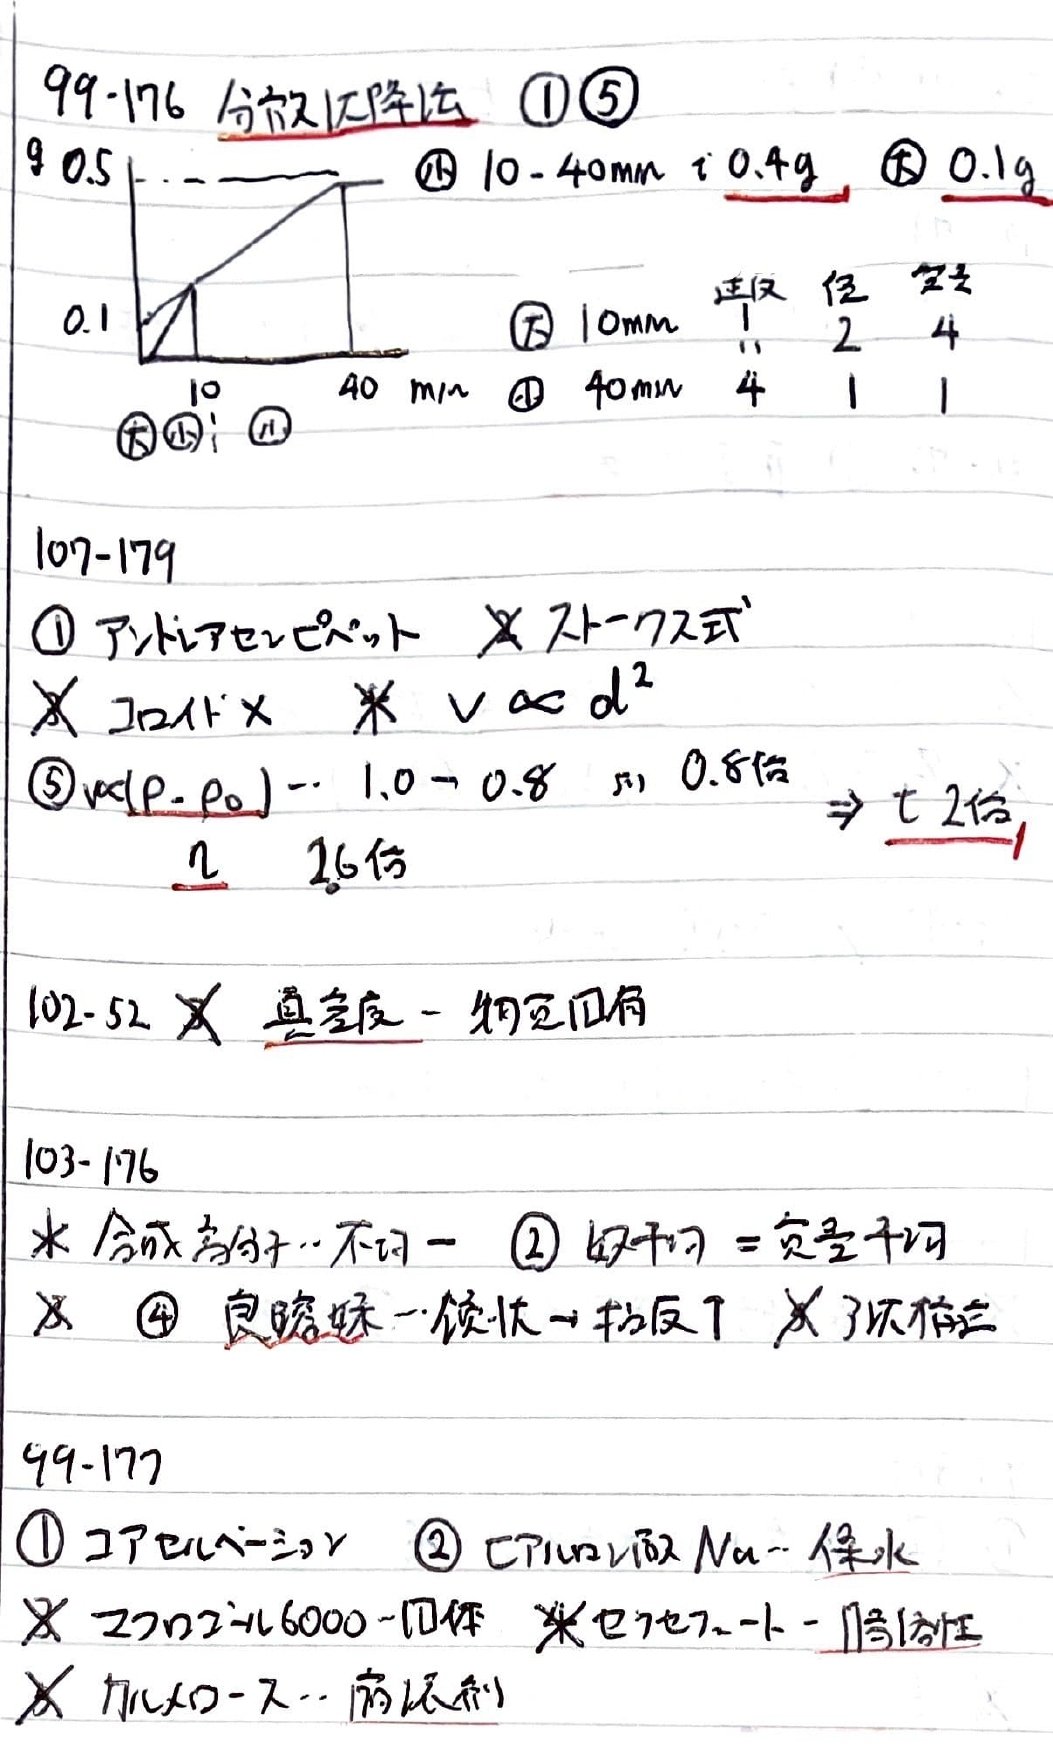 99-176 分散沈降法 ① ⑤
g 0.5 小 10-40min で 0.4g 大 0.1g
速度 径 質量
0.1 大 10min 1 2 4
10 40 min 小 40min 4 1 1
大 小 小
107-179
① アンドレアセンピペット ストークス式
コロイド× v ∝ d²
⑤ v∝(ρ-ρ₀) … 1.0→0.8 0.8倍 ⇒ t 2倍
η 1.6倍
102-52 真密度 - 物質固有
103-176
合成高分子‥不均一 ② 数平均 = 質量平均
④ 良溶媒 … 鎖状→粘度↑ 3次構造
99-177
① コアセルベーション ② ヒアルロン酸Na‥保水
マクロゴール6000-固体 セラセフェート - 腸溶性
カルメロース‥崩壊剤